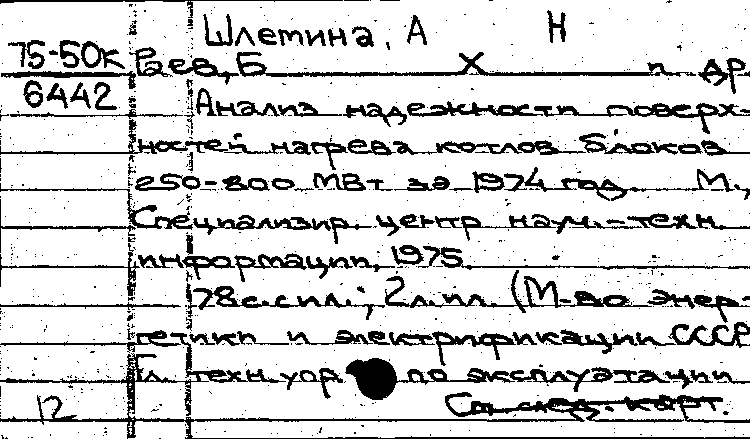 Шлетина, А Н
75-50к Раев, Б Х и др
6442 Анализ надежности поверх-
ностей нагрева котлов блоков
250-800 МВт за 1974 год. М.,
Специализир. центр науч.-техн.
информации, 1975.
178с. с ил.; 2л. ил. (М-во энер-
гетики и электрификации СССР
Гл. техн. упр по эксплуатации
12 См. след. карт.